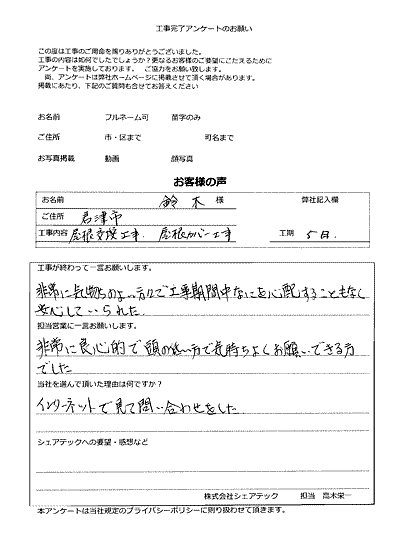 工事完了アンケートのお願い
この度は工事のご用命を賜りありがとうございました。
工事の内容は如何でしたでしょうか？更なるお客様のご要望にこたえるために
アンケートを実施しております。 ご協力をお願い致します。
尚、アンケートは弊社ホームページに掲載させて頂く場合があります。
掲載にあたり、下記のご質問も合せてお答えください
お名前 フルネーム可 苗字のみ
ご住所 市・区まで 町名まで
お写真掲載 動画 顔写真
お客様の声
お名前 鈴木 様 弊社記入欄
ご住所 君津市
工事内容 屋根交換工事、屋根カバー工事 工期 5日
工事が終わって一言お願いします。
非常に気持ちのよい方々で工事期間中なにを心配することもなく
安心していられた
担当営業に一言お願いします。
非常に良心的で頭の低い方で気持ちよくお願いできる方
でした
当社を選んで頂いた理由は何ですか？
インターネットで見て問い合わせをした
シェアテックへの要望・感想など
株式会社シェアテック 担当 高木栄一
本アンケートは当社規定のプライバシーポリシーに則り扱わせて頂きます。